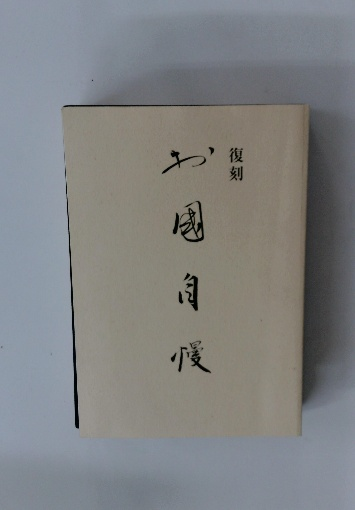 復刻
お國自慢